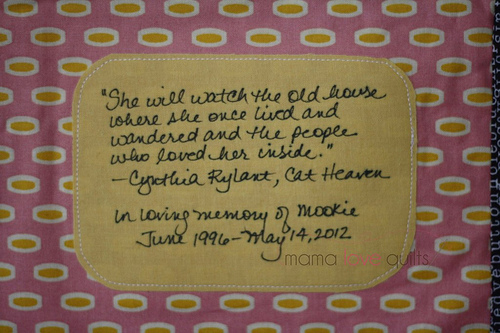 "She will watch the old house
where she once lived and
wandered and the people
who loved her inside."
—Cynthia Rylant, Cat Heaven
In loving memory of Mookie
June 1996–May 14, 2012
mama love quilts